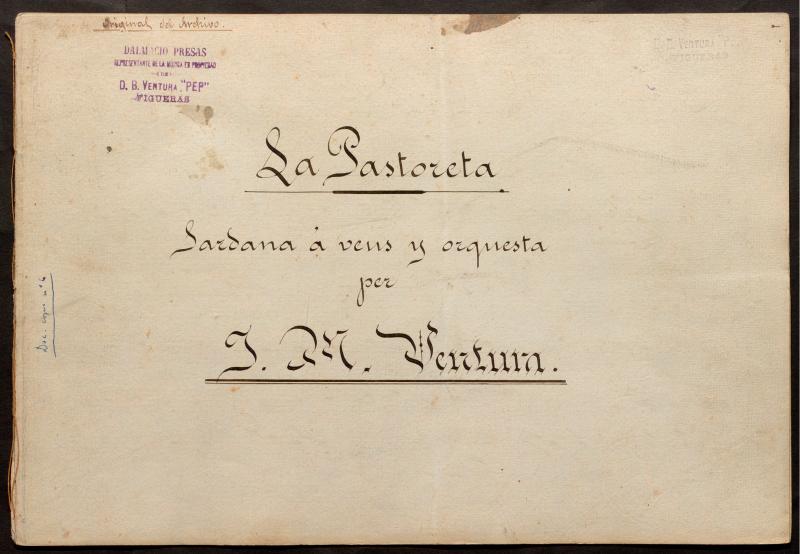 Original del Archivo.
DALMACIO PRESAS
REPRESENTANTE DE LA MÚSICA EN PROPIEDAD
DE
D. B. VENTURA "PEP"
FIGUERAS
D. B. VENTURA "P
FIGUERAS
La Pastoreta.
Sardana á veus y orquesta
per
J. M. Ventura.
Doc. nº 4